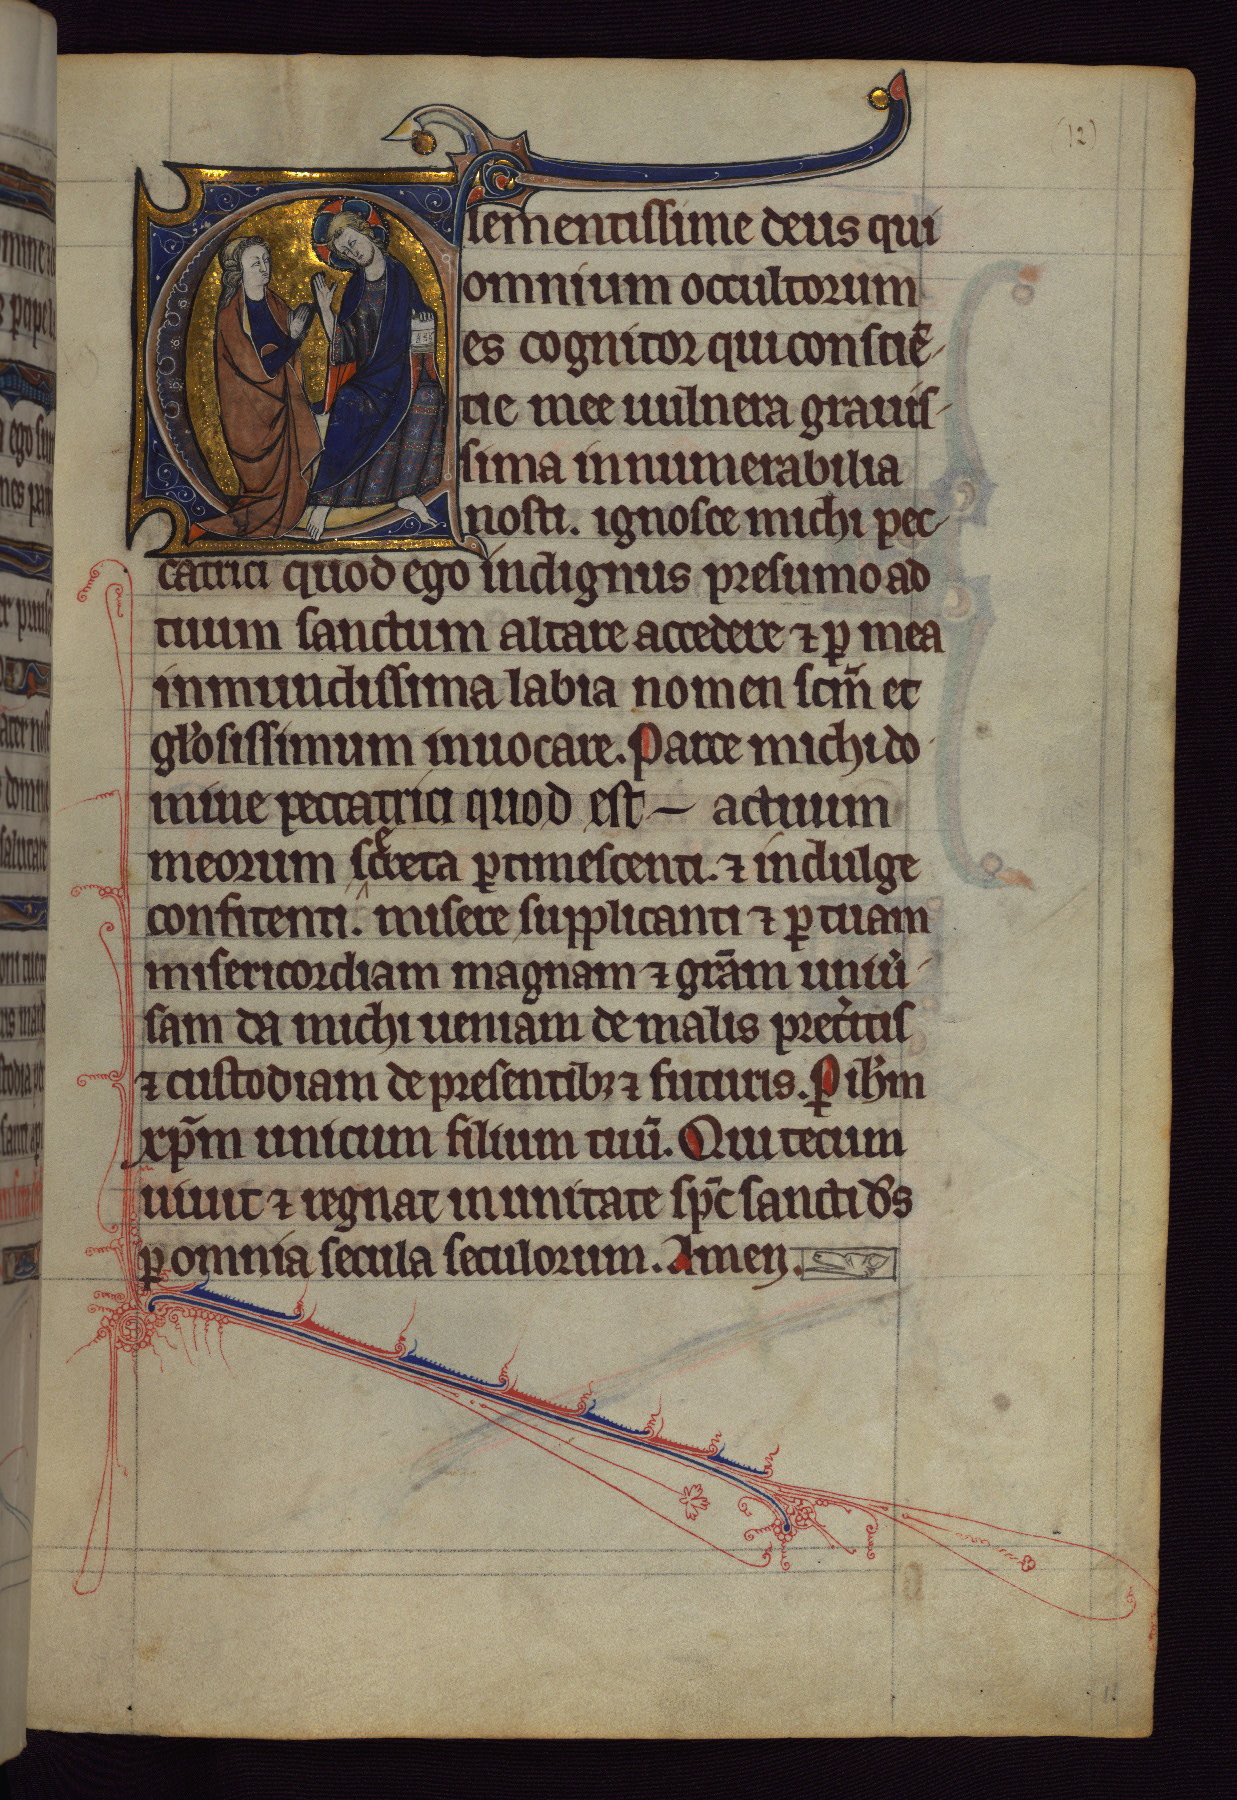 (12)
Clementissime deus qui
omnium occultorum
es cognitor qui consciē-
tie mee uulnera grauis-
sima innumerabilia
nosti. ignosce michi pec-
catrici quod ego indignus presumo ad
tuum sanctum altare accedere ⁊ ꝑ mea
inmundissima labia nomen scm̄ et
gl'osissimum inuocare. Parce michi do-
mine peccatrici quod est — actuum
meorum secreta ꝑtimescenti. ⁊ indulge
confitenti. misere supplicanti ⁊ ꝑ tuam
misericordiam magnam ⁊ gr̄am uniu'-
sam da michi ueniam de malis pret'itis
⁊ custodiam de presentibꝫ ⁊ futuris. Ꝑ ih̄m
xp̄m unicum filium tuū. Qui tecum
uiuit ⁊ regnat in unitate sp̄c sancti d's
ꝑ omnia secula seculorum. Amen.
11